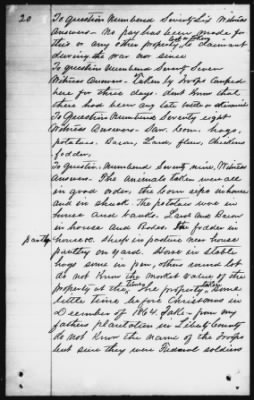 20 To Question Numbered Seventy Six Witness
Answers - No pay has been made for
this or any other property lost or taken to claimant
during the war or since
To question Numbered Seventy Seven
Witness Answers - Taken by Troops Camped
here for three days. dont Know that
there had been any late
To Question Numbered Seventy eight
Witness Answers - Saw. Corn. hogs.
potatoes. Bacon, Lard, flour, chickens
fodder.
To Question Numbered Seventy nine, Witness
Answers - The Animals taken were all
in good order, the Corn ripe in house
and in shuck. the potatoes were in
house and banks. Lard and Bacon
in house and Boxes. The fodder in
house &c. Sheep in pasture near house
partly on yard. Horse in stable
hogs some in pen, others round lot
do not Know the market value of the
property at the time The property taken some
little time before Christmas in
December of 1864. Take - from my
fathers plantation in Liberty County
do not Know the name of the Troops
but sure they were Federal soldiers